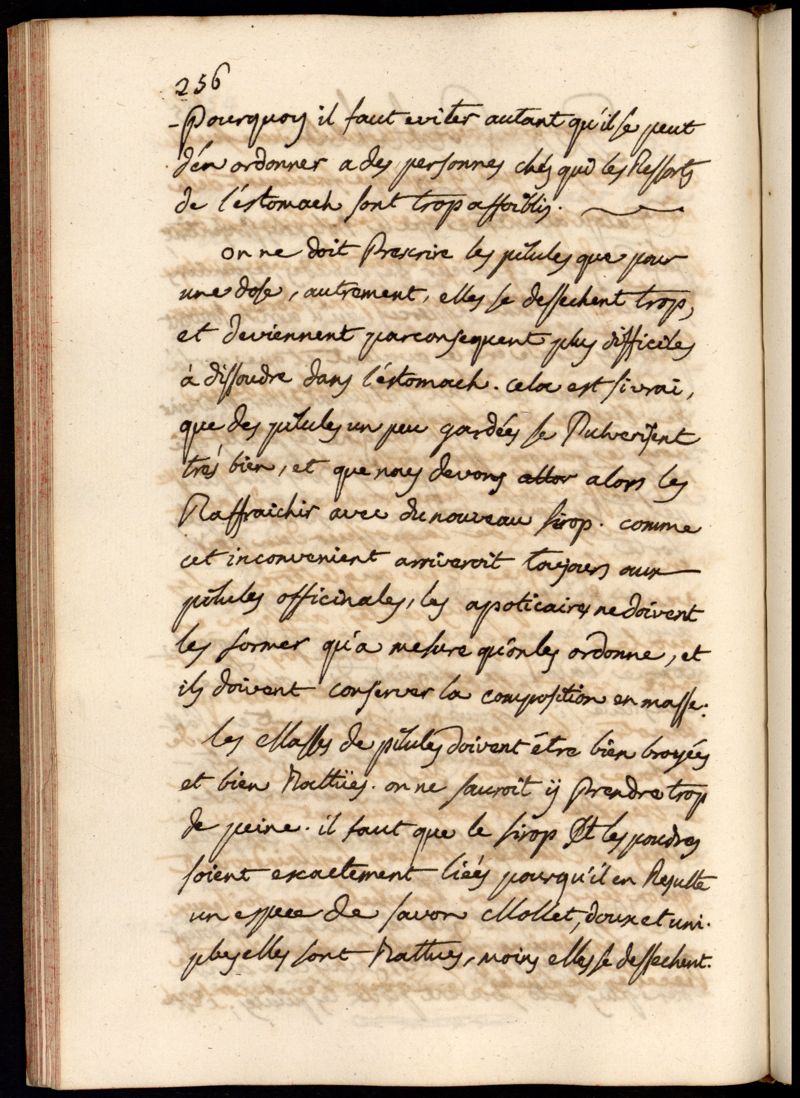 256
-Pourquoy il faut eviter autant qu'il se peut
d'én ordonner a des personnes chés qui les Ressorts
de l'éstomach sont trop affoiblis.
on ne doit Prescrire les pilules que pour
une dose, autrement, elles se dessechent trop,
et deviennent parconsequent plus difficiles
à dissoudre dans l'éstomach. cela est si vrai,
que des pilules un peu gardées se Pulverisent
trés bien, et que nous devons alors les
Raffraichir avec du nouveau sirop. comme
cet inconvenient arriveroit toujours aux
pilules officinales, les apoticaires ne doivent
les former qu'a mesure qu'on les ordonne, et
ils doivent conserver la composition en masse.
les Masses de pilules doivent étre bien broyées
et bien Battües. on ne sauroit ÿ Prendre trop
de peine. il faut que le sirop Et les poudres
soient exactement liées pourqu'il en Resulte
un espece de savon Mollet, doux et uni.
plus elles sont Battues, moins elles se dessechent.